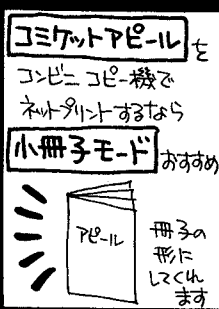 コミケットアピールを
コンビニコピー機で
ネットプリントするなら
小冊子モードおすすめ
アピール
冊子の
形に
してくれ
ます